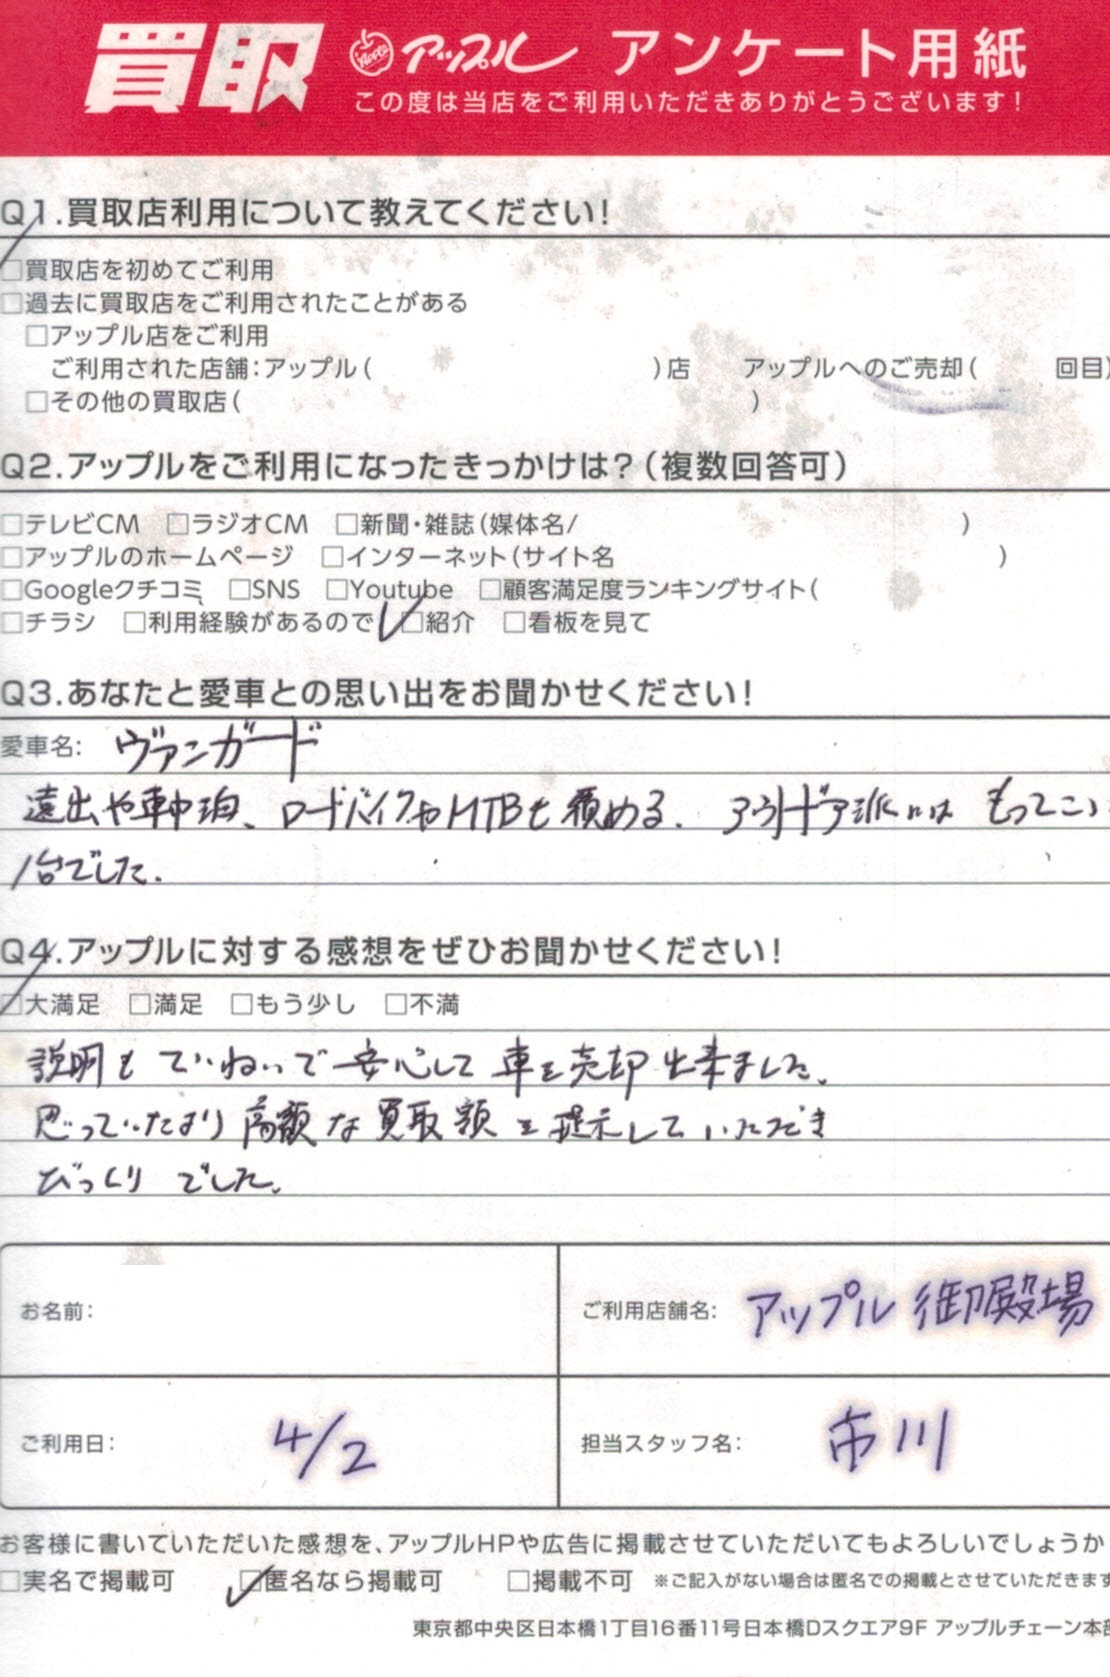 買取 Apple アップル アンケート用紙
この度は当店をご利用いただきありがとうございます!
Q1.買取店利用について教えてください!
□買取店を初めてご利用
□過去に買取店をご利用されたことがある
□アップル店をご利用
ご利用された店舗:アップル( )店 アップルへのご売却( 回目)
□その他の買取店( )
Q2.アップルをご利用になったきっかけは?(複数回答可)
□テレビCM □ラジオCM □新聞・雑誌(媒体名/ )
□アップルのホームページ □インターネット(サイト名 )
□Googleクチコミ □SNS □Youtube □顧客満足度ランキングサイト(
□チラシ □利用経験があるので □紹介 □看板を見て
Q3.あなたと愛車との思い出をお聞かせください!
愛車名: ヴァンガード
遠出や車中泊、ロードバイクやMTBも積める。アウトドア派にはもってこい
1台でした。
Q4.アップルに対する感想をぜひお聞かせください!
□大満足 □満足 □もう少し □不満
説明もていねいで安心して車を売却出来ました。
思っていたより高額な買取額を提示していただき
びっくりでした。
お名前: ご利用店舗名: アップル御殿場
ご利用日: 4/2 担当スタッフ名: 市川
お客様に書いていただいた感想を、アップルHPや広告に掲載させていただいてもよろしいでしょうか
□実名で掲載可 □匿名なら掲載可 □掲載不可 ※ご記入がない場合は匿名での掲載とさせていただきます
東京都中央区日本橋1丁目16番11号日本橋Dスクエア9F アップルチェーン本部